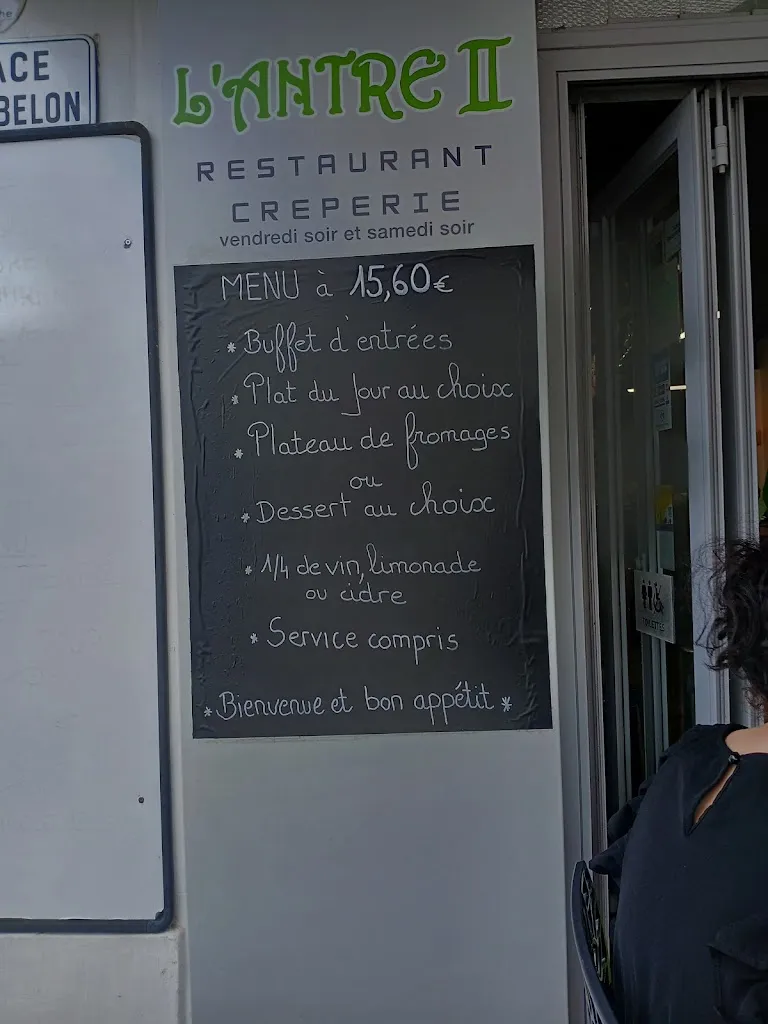 ACE
BELON
L'ANTRE II
RESTAURANT
CREPERIE
vendredi soir et samedi soir
MENU à 15,60€
* Buffet d'entrées
* Plat du Jour au choix
* Plateau de fromages
ou
* Dessert au choix
* 1/4 de vin, limonade
ou cidre
* Service compris
* Bienvenue et bon appétit *